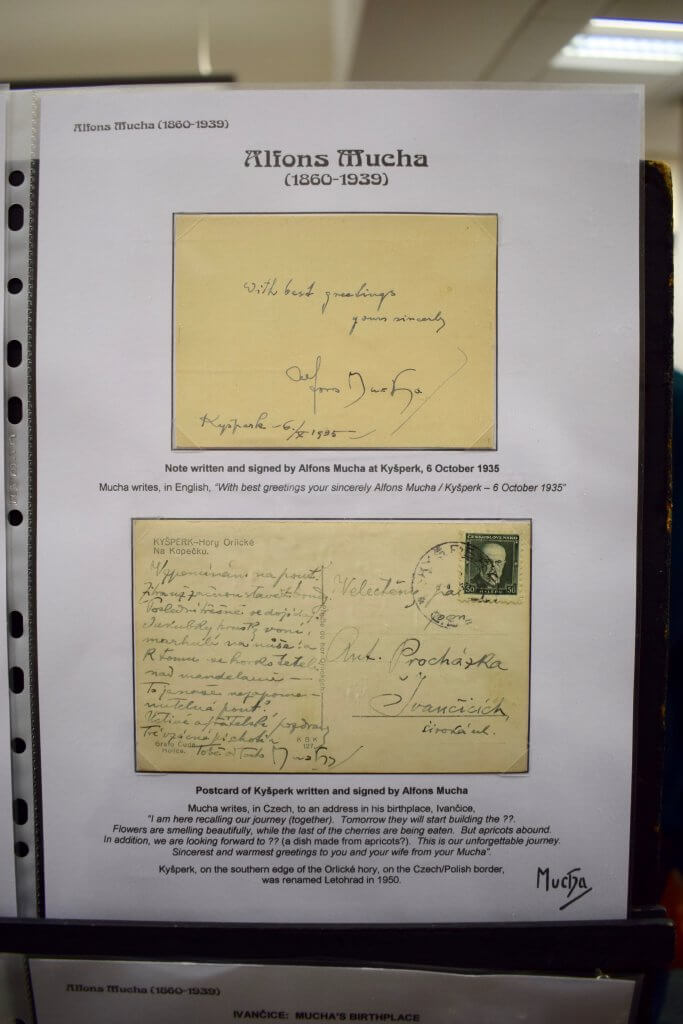 Alfons Mucha (1860-1939)
Alfons Mucha
(1860-1939)
With best greetings
yours sincerely
Alfons Mucha
Kyšperk - 6./X 1935
Note written and signed by Alfons Mucha at Kyšperk, 6 October 1935
Mucha writes, in English, "With best greetings your sincerely Alfons Mucha / Kyšperk – 6 October 1935"
KYŠPERK–Hory Orlické
Na Kopečku.
ČESKOSLOVENSKO
50 HALÉŘŮ 50
Vzpomínám na pouť.
Velectěný pán
pan
Poslední třešně se dojídají
Ant. Procházka
K tomu se
nad mandelami –
To je naše nezapome-
nutelná pouť!
Ivančicích,
široká ul.
pozdrav
K B K
127.
Grafo Čuda
Holice.
Mucha
Postcard of Kyšperk written and signed by Alfons Mucha
Mucha writes, in Czech, to an address in his birthplace, Ivančice,
"I am here recalling our journey (together). Tomorrow they will start building the ??.
Flowers are smelling beautifully, while the last of the cherries are being eaten. But apricots abound.
In addition, we are looking forward to ?? (a dish made from apricots?). This is our unforgettable journey.
Sincerest and warmest greetings to you and your wife from your Mucha".
Kyšperk, on the southern edge of the Orlické hory, on the Czech/Polish border,
was renamed Letohrad in 1950.
Mucha
Alfons Mucha (1860-1939)
IVANČICE: MUCHA'S BIRTHPLACE